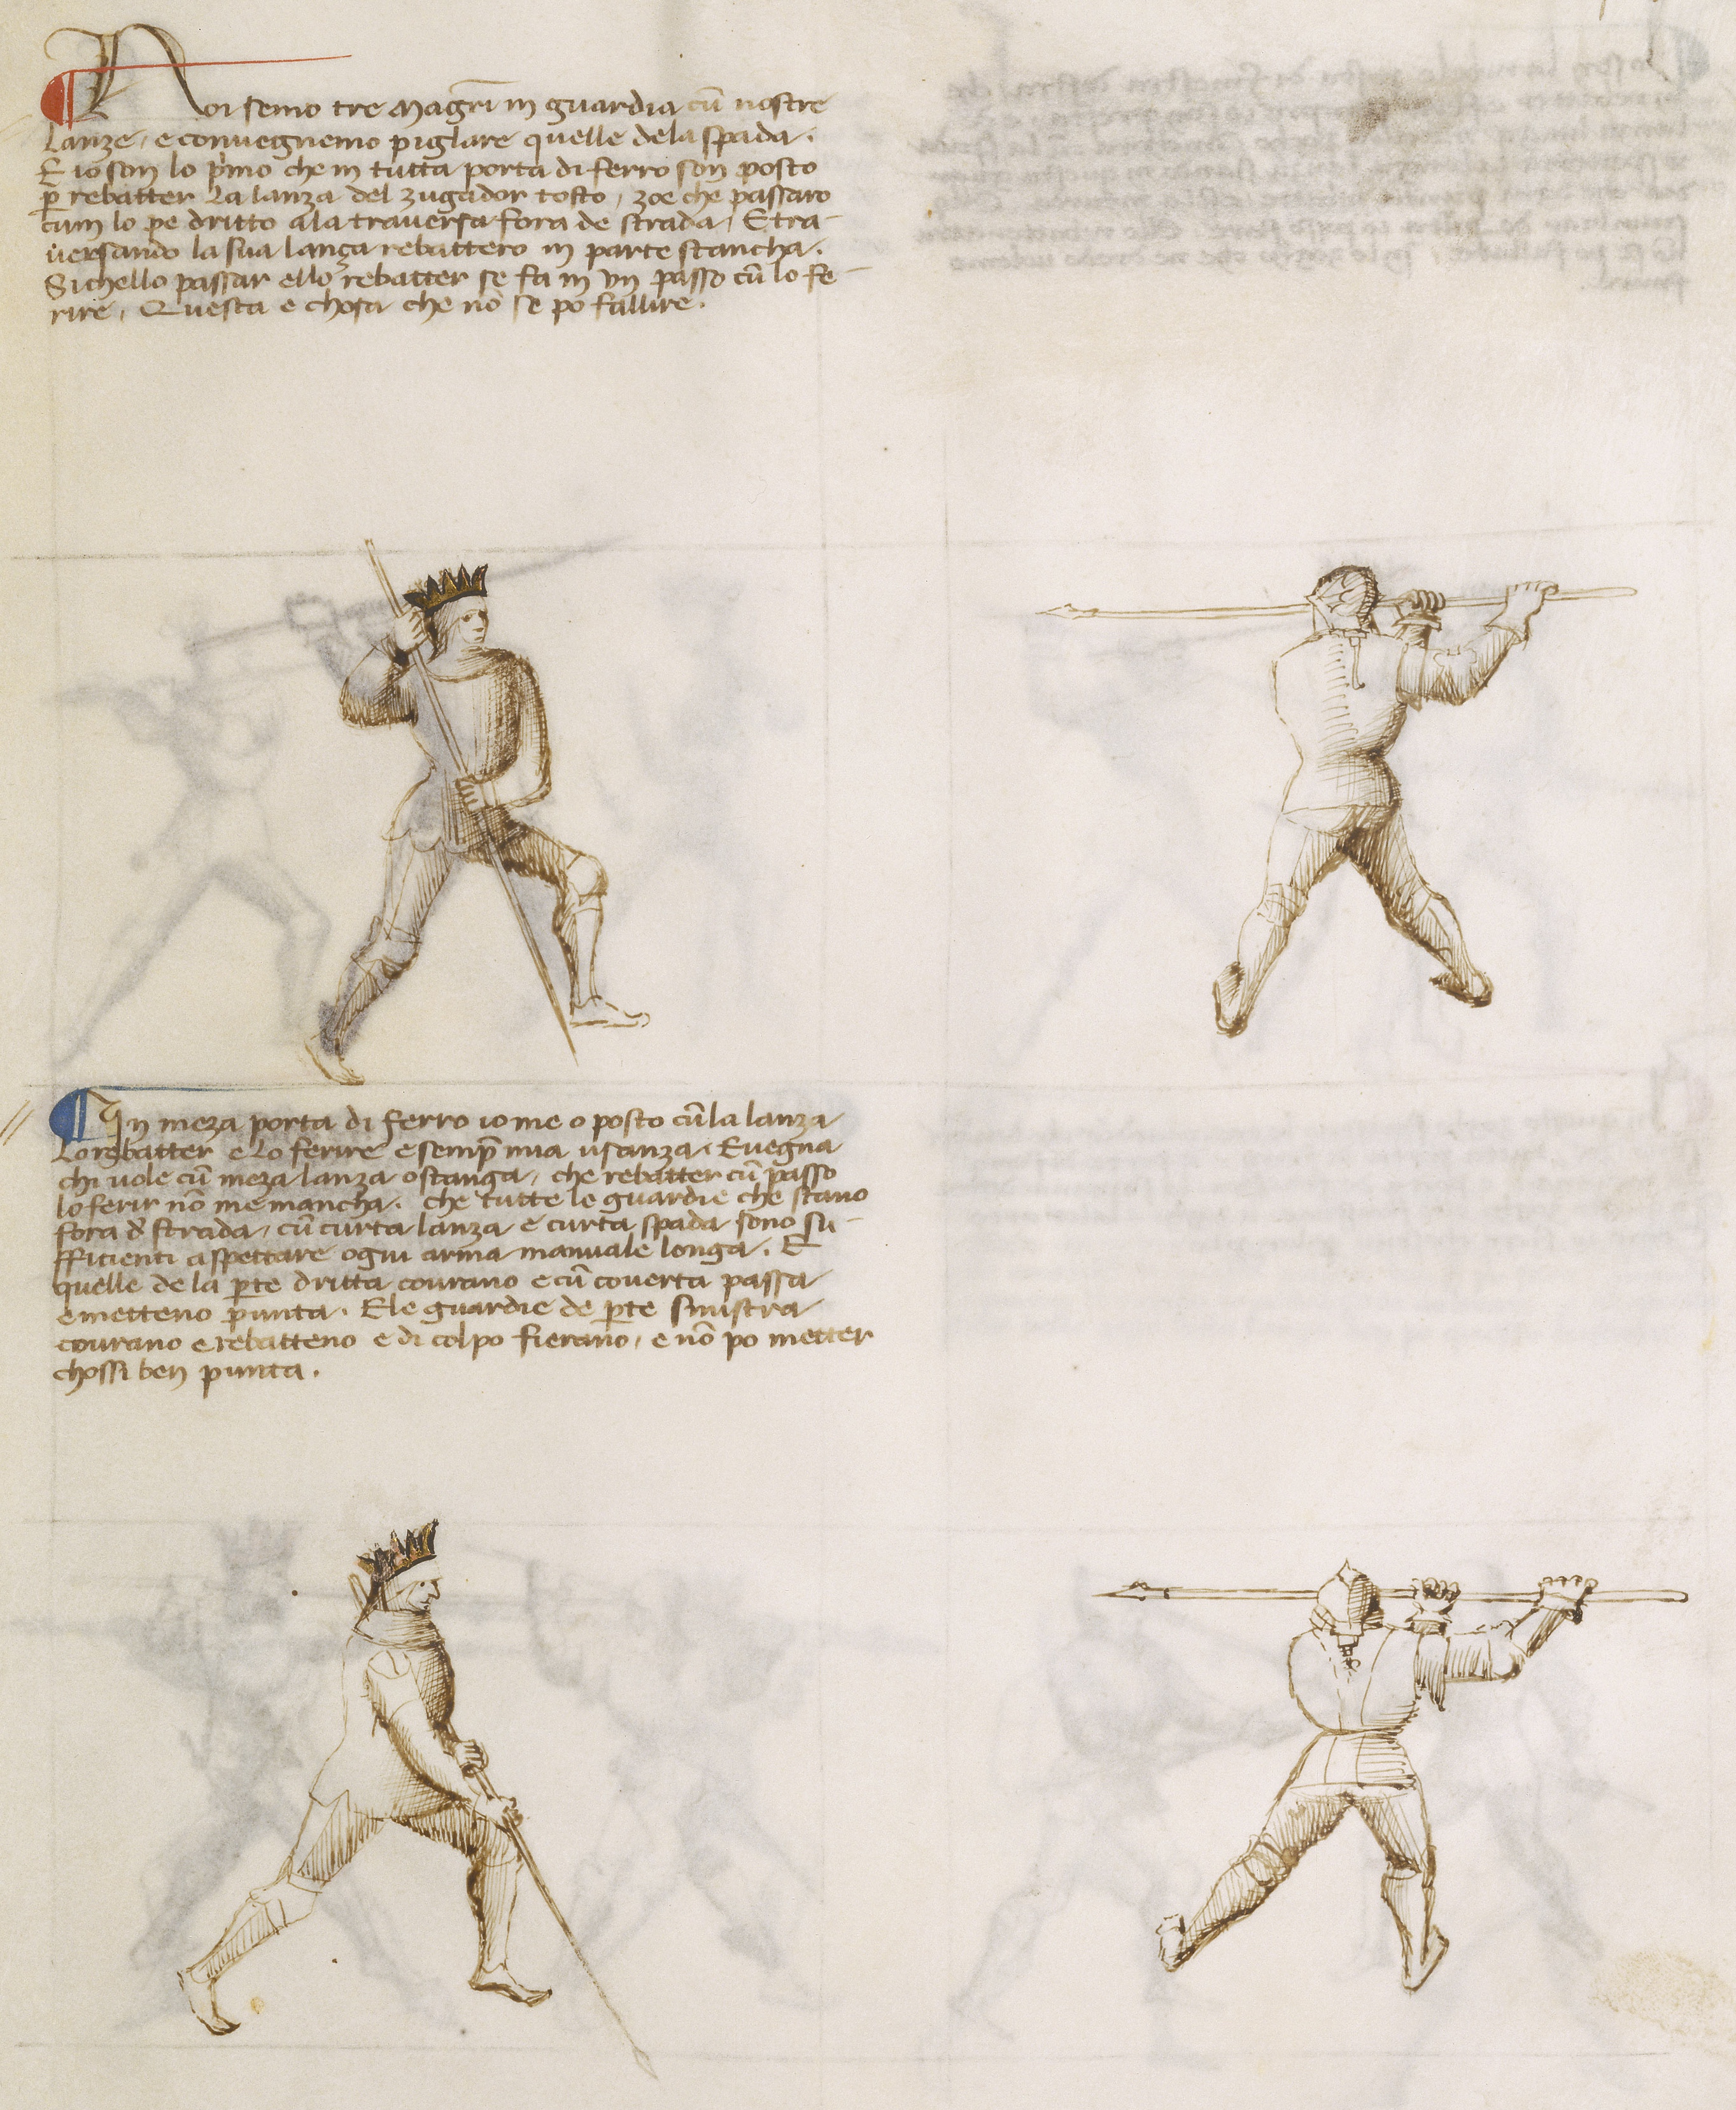 Noi semo tre Magr̄i in guardia cū nostre
lanze, e convegnemo piglare quelle dela spada.
E io son lo p'mo che in tutta porta di ferro son posto
p̱ rebatter la lanza del zugador tosto, zoe che passaro
cum lo pe dritto ala traversa fora de strada, E tra-
versando la sua lanza rebattero in parte stancha.
Si chello passar ello rebatter se fa in un passo cū lo fe-
rire, Questa e chosa che nō se po fallire.
In meza porta di ferro io me o posto cū la lanza
Lo rebatter e lo ferire e semp̱ mia usanza. E vegna
chi vole cū meza lanza o stanga, che rebatter cū passo
lo ferir nō me mancha. che tutte le guardie che stano
fora d' strada, cū curta lanza e curta spada sono su-
fficienti aspettare ogni arma manuale longa. E
quelle de la p̱te dritta covrano e cū coverta passa
e metteno punta. E le guardie de p̱te sinistra
covrano e rebatteno e di colpo fierano, e nō po metter
chossi ben punta.